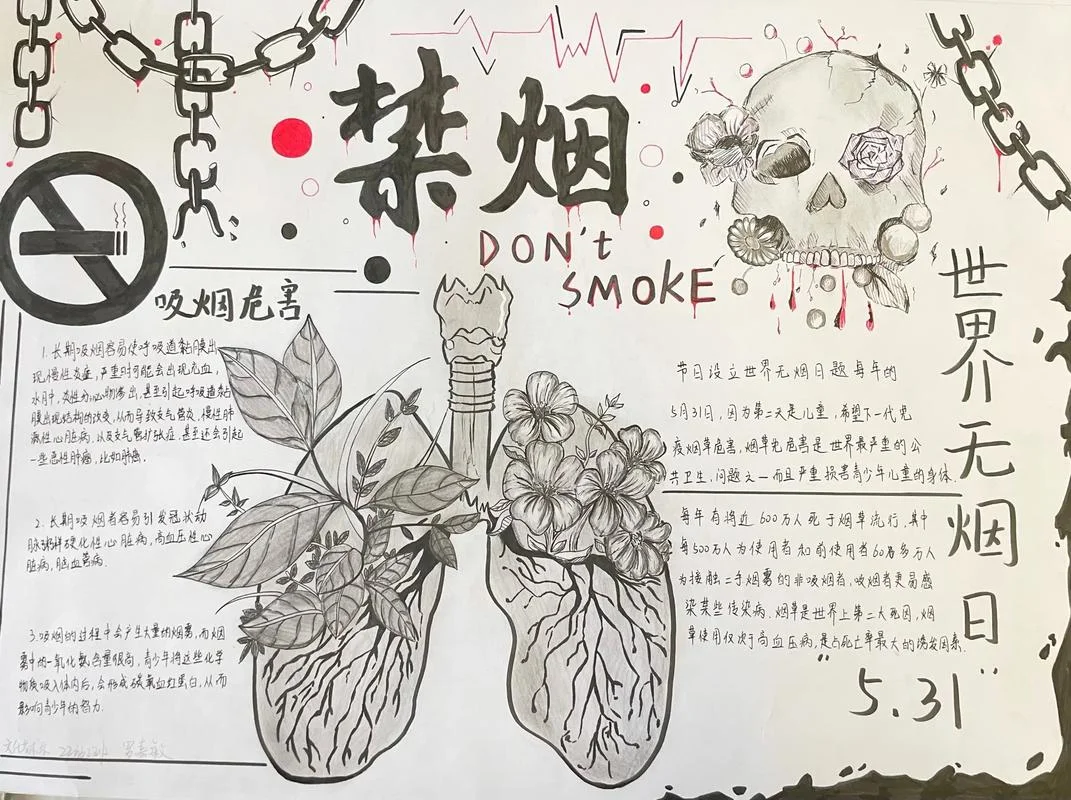 禁烟
DON't
SMOKE
吸烟危害
1.长期吸烟容易使呼吸道黏膜出
现慢性炎症,严重时可能会出现充血,
水肿,炎性分泌物渗出,甚至引起呼吸道黏
膜出现结构的改变,从而导致支气管炎,慢性肺
源性心脏病,以及支气管扩张症,甚至还会引起
一些恶性肿瘤,比如肺癌.
2.长期吸烟者容易引发冠状动
脉粥样硬化性心脏病,高血压性心
脏病,脑血管病.
3.吸烟的过程中会产生大量的烟雾,而烟
雾中的一氧化氮含量很高,青少年将这些化学
物质吸入体内后,会形成碳氧血红蛋白,从而
影响青少年的智力.
节日设立世界无烟日题每年的
5月31日,因为第二天是儿童,希望下一代免
疫烟草危害,烟草危害是世界最严重的公
共卫生,问题之一而且严重损害青少年儿童的身体.
每年有将近600万人死于烟草流行,其中
每500万人为使用者和前使用者60多万人
为接触二手烟雾的非吸烟者,吸烟者更易感
染某些传染病.烟草是世界上第二大死因,烟
草使用仅次于高血压病,是占死亡率最大的诱发因素.
世界无烟日
"5.31"